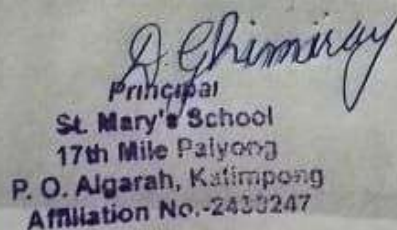 D. Ghimiray
Principal
St. Mary's School
17th Mile Palyong
P. O. Algarah, Kalimpong
Affiliation No.-2430247